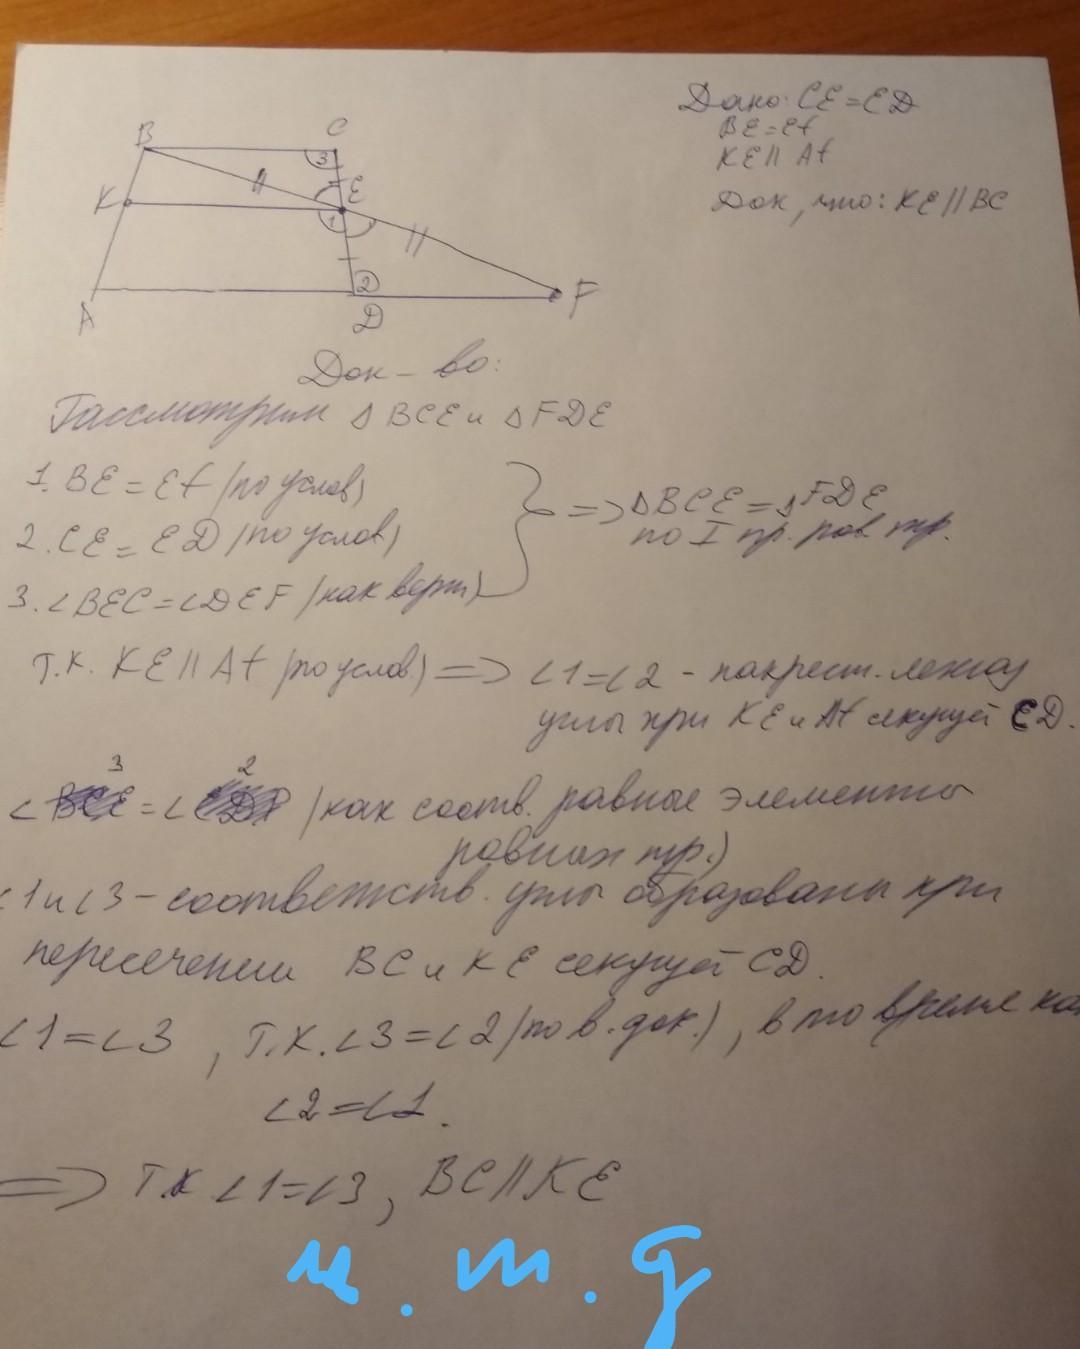 Дано: CE = ED
BE = Ef
KE || Af
Док, что: KE || BC
B
C
3
K
E
1
2
A
D
F
Док - во:
Рассмотрим △ BCE и △ FDE
1. BE = Ef (по услов)
2. CE = ED (по услов)
3. ∠BEC = ∠DEF (как верт)
=> △BCE = △FDE
по I пр. рав. тр.
Т.к. KE || Af (по услов.) => ∠1 = ∠2 - накрест. лежащ
углы при KE и Af секущей CD.
∠3 = ∠2 (как соотв. равные элементы
равных тр.)
∠1 и ∠3 - соответств. углы образованы при
пересечении BC и KE секущей CD.
∠1 = ∠3, т.к. ∠3 = ∠2 (по в. док.), в то время как
∠2 = ∠1.
=> т.к ∠1 = ∠3, BC || KE
ч. т. д